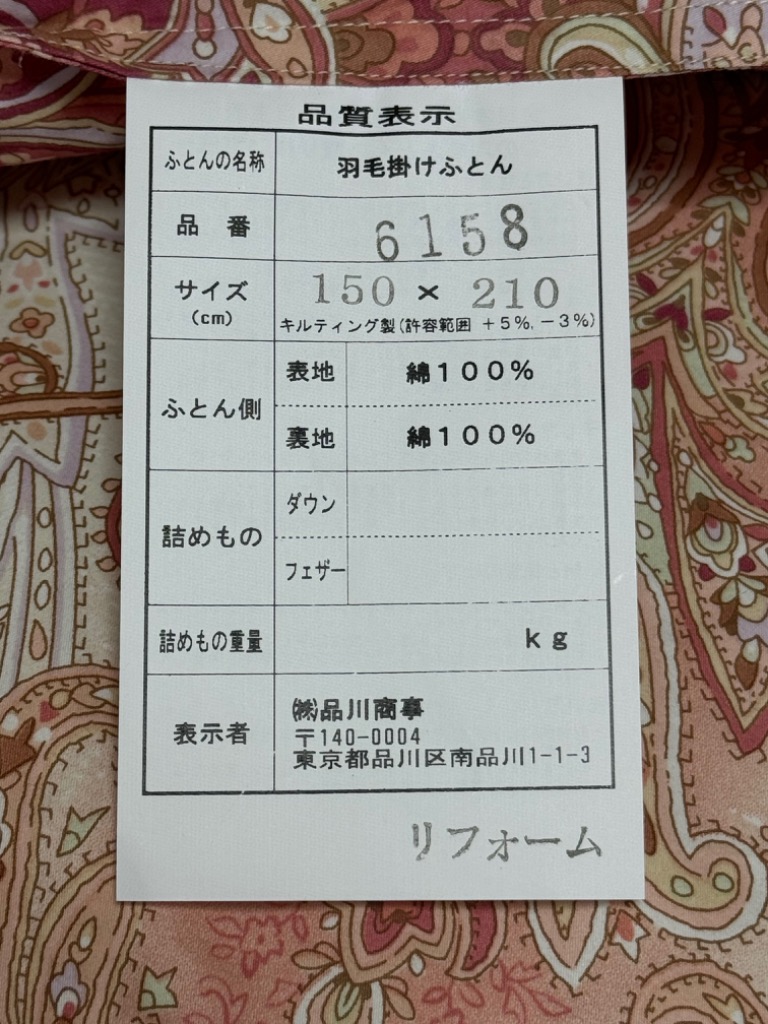 品質表示
ふとんの名称 羽毛掛けふとん
品 番 6158
サイズ 150 × 210
(cm) キルティング製(許容範囲 +5%,-3%)
表地 綿100%
ふとん側
裏地 綿100%
ダウン
詰めもの
フェザー
詰めもの重量 kg
㈱品川商事
表示者 〒140-0004
東京都品川区南品川1-1-3
リフォーム